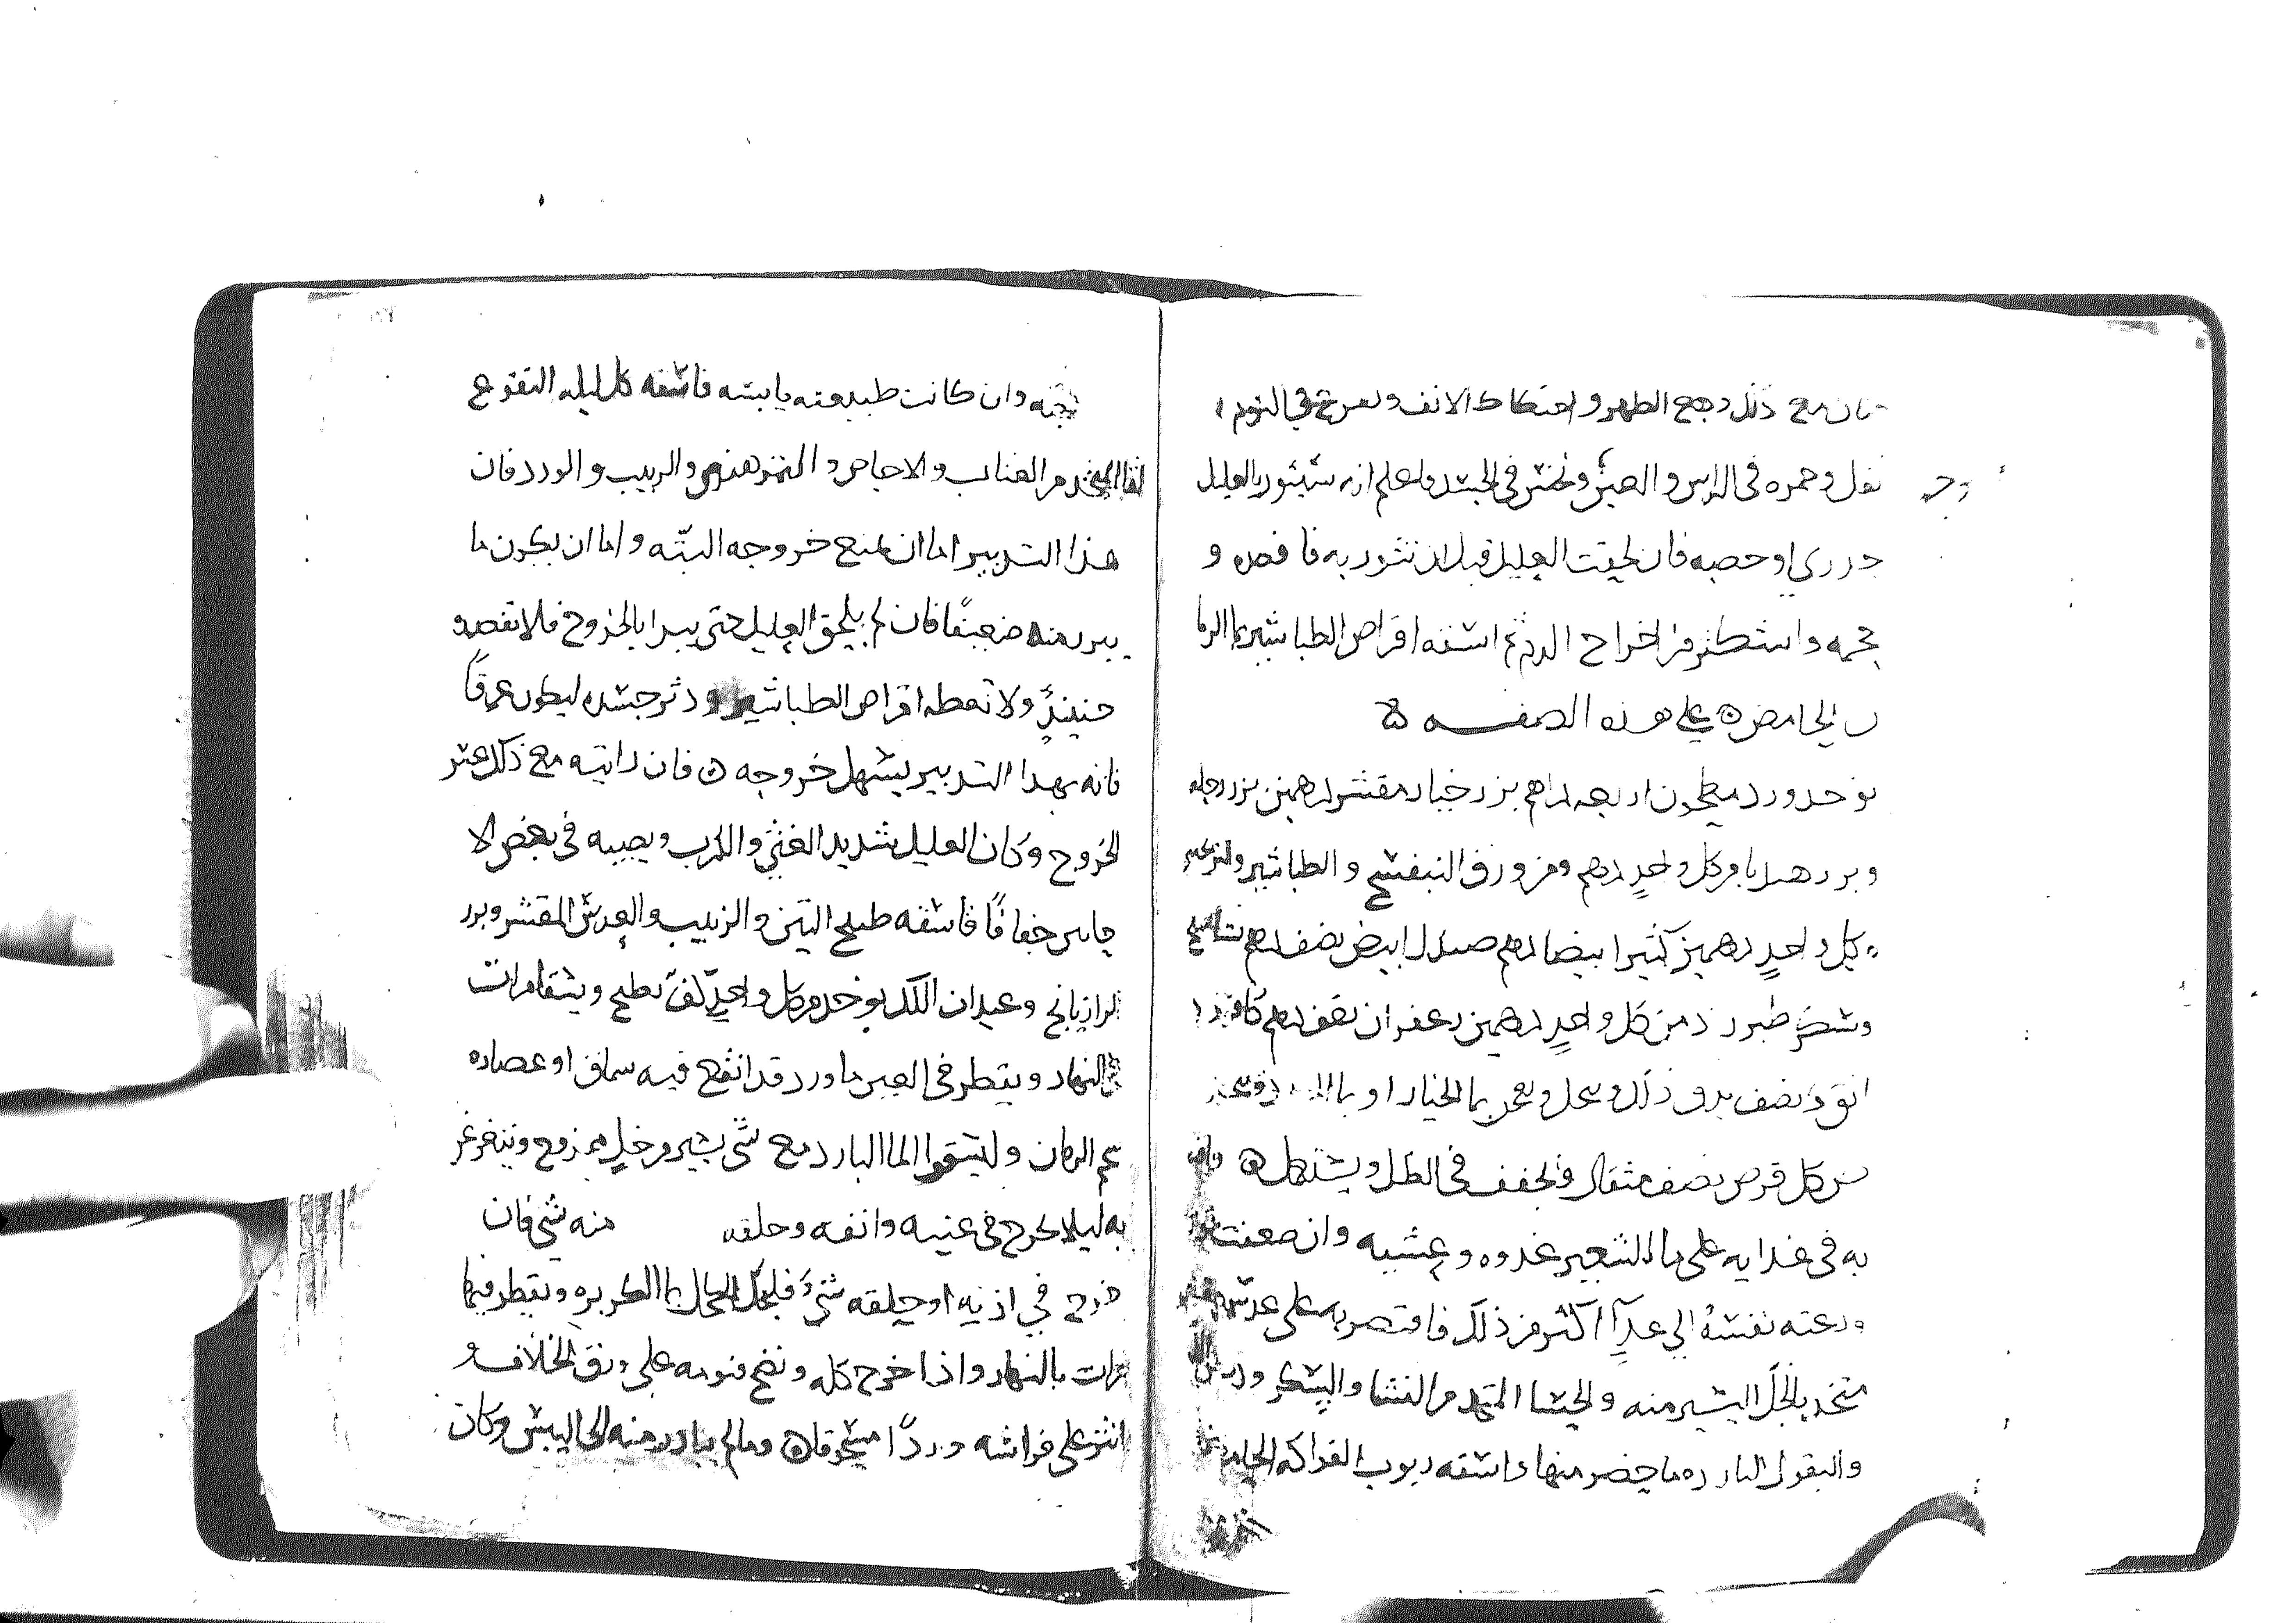 كان مع ذلك وجع الظهر واحتكاك الانف وتفزع في النوم
ثقل وحمره في الراس والعين ونخس في الجسد واعلم انه سيثور بالعليل
جدري او حصبه فان لحقت العليل قبل ان تثور به فافصده و
حجمه واستكثر من اخراج الدم ثم اسقه اقراص الطباشير بما الرما
ن الحامض على هذه الصفه
يوخذ ورد مطحون اربعه دراهم بزر خيار مقشر درهمين بزر رجله
وبزر هندبا من كل واحدٍ درهم ومن ورق البنفسج والطباشير
كل واحدٍ درهمين كثيرا بيضا درهم صندل ابيض نصف درهم
وسكر طبرزد من كل واحدٍ درهمين زعفران نصف درهم كافور
نصف يدق ذلك وينخل ويعجن بما الخيار او بما
كل قرص نصف مثقال ويجفف في الظل ويستعمل
به في غدايه على ما الشعير غدوه وعشيه وان ضعفت
ودعته نفسهُ الى غدآ اكثر من ذلك فاقتصر به على عدس
متخد بالخل اليسير منه والحسا المتخد من النشا والسكر
والبقول البارده ما حضر منها واسقه ربوب الفواكه
وان كانت طبيعته يابسه فاسقه كل ليله النقوع
المتخد من العناب والاجاص والتمر هندي والزبيب والورد فان
هذا التدبير اما ان يمنع خروجه البتّه واما ان يكون ما
يبرز منه ضعيفًا فان لم يلحق العليل حتى يبدا بالخروج فلا تفصده
حينيذٍ ولا تعطه اقراص الطباشير ودثر جسده ليكون عرقاً
فانه بهذا التدبير يسهل خروجه فان رايته مع ذلك عسر
الخروج وكان العليل شديد الغثي والكرب ويصيبه في بعض الا
حايين خفاقًا فاسقه طبيخ التين والزبيب والعدس المقشر وبزر
الرازيانج وعيدان اللك يوخد من كل واحدٍ كفّ يطبخ ويسقا مرات
النهار ويقطر في العين ماورد قد انقع فيه سماق او عصاره
شحم الرمان وليسقوا الما البارد مع شي يسير من خلٍ ممزوج ويتغرغر
به ليلا يخرج في عينيه وانفه وحلقه منه شي فان
خرج في اذنيه او حلقه شيءٌ فليحل الكحل بما الكزبره ويقطر فيها
مرات بالنهار واذا خرج كله ونضج فنومه على ورق الخلاف و
انثر على فراشه وردًا مسحوقًا وما لم يبادر منه الى اليبس وكان